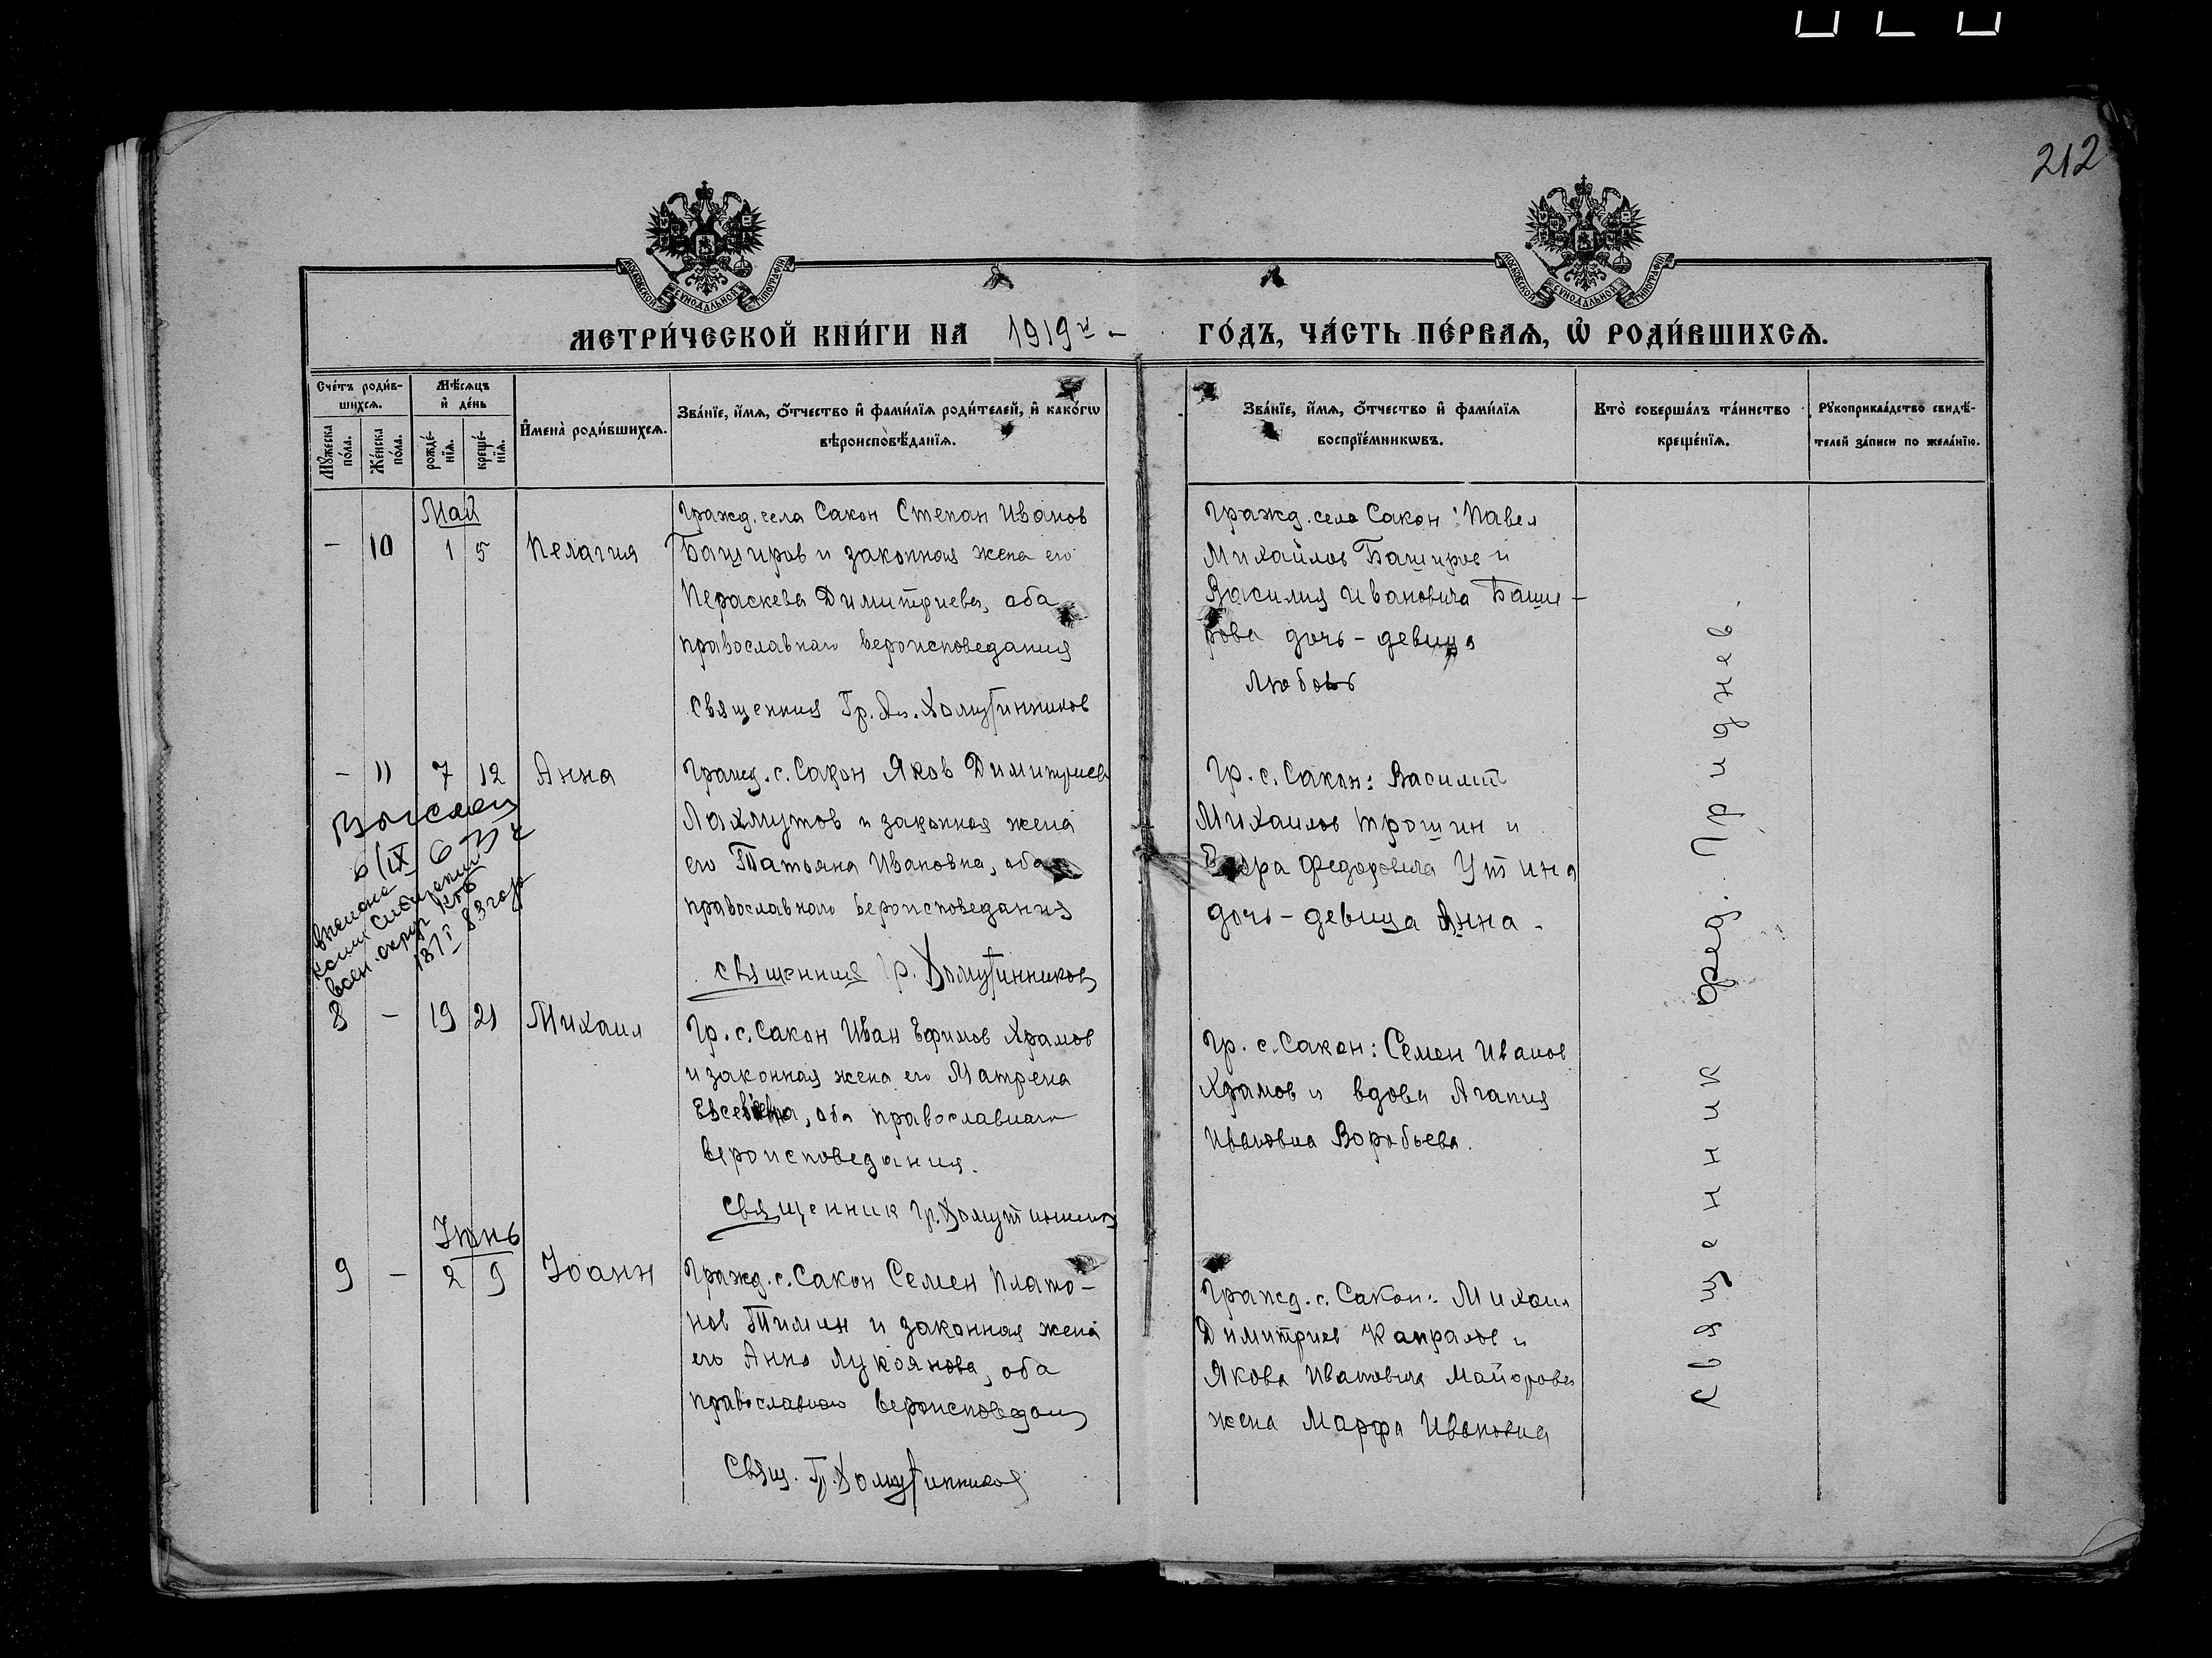 212
МОСКОВСКОЙ СѴНОДАЛЬНОЙ ТИПОГРАФІИ
МОСКОВСКОЙ СѴНОДАЛЬНОЙ ТИПОГРАФІИ
МЕТРИ́ЧЕСКОЙ КНИ́ГИ НА 1919 го́дъ, ча́сть пе́рваѧ, ѡ҆ роди́вшихсѧ.
Сче́тъ роди́в-
шихсѧ.
Мѹ́жеска по́ла.
Же́нска по́ла.
Мѣ́сѧцъ
и҆ де́нь
рожде́-
нїѧ.
креще́-
нїѧ.
И҆мена̀ роди́вшихсѧ.
Зва́нїе, и҆́мѧ, ѻ҆́тчество и҆ фами́лїѧ роди́телей, и҆ како́гѡ
вѣроисповѣ́данїѧ.
Зва́нїе, и҆́мѧ, ѻ҆́тчество и҆ фами́лїѧ
воспрїе́мникѡвъ.
Кто̀ соверша́лъ та́инство
креще́нїѧ.
Рѹкоприкла́дство свидѣ́-
телей за́писи по жела́нїю.
Май
- 10 1 5 Пелагия
Гражд. села Сакон Степан Иванов
Баширов и законная жена его
Пераскева Димитриева, оба
православнаго вероисповедания
Священник Гр. Хомутинников
Гражд. села Сакон: Павел
Михайлов Баширов и
Василия Ивановича Баши-
рова дочь - девица
Любовь
- 11 7 12 Анна
Гражд. с. Сакон Яков Димитриев
Лахмутов и законная жена
его Татьяна Ивановна, оба
православнаго вероисповедания
Священник Гр. Хомутинников
Гр. с. Сакон: Василий
Михаилов Трошин и
Федоровича Утина
дочь - девица Анна.
6/IX
воен. окр
8 - 19 21 Михаил
Гр. с. Сакон Иван Ефимов Храмов
и законная жена его Матрена
Евсевьевна, оба православнаго
вероисповедания.
Священник Гр. Хомутинников
Гр. с. Сакон: Семен Иванов
Храмов и вдова Агапия
Ивановна Воробьева.
Июнь
9 - 2 9 Иоанн
Гражд. с. Сакон Семен Плато-
нов Тимин и законная жена
его Анна Лукоянова, оба
православнаго вероисповедан
Свящ. Гр. Хомутинников
Гражд. с. Сакон: Михаил
Димитриев Капралов и
Якова Ивановича Майорова
жена Марфа Ивановна
Священник Феод. Прибжев.